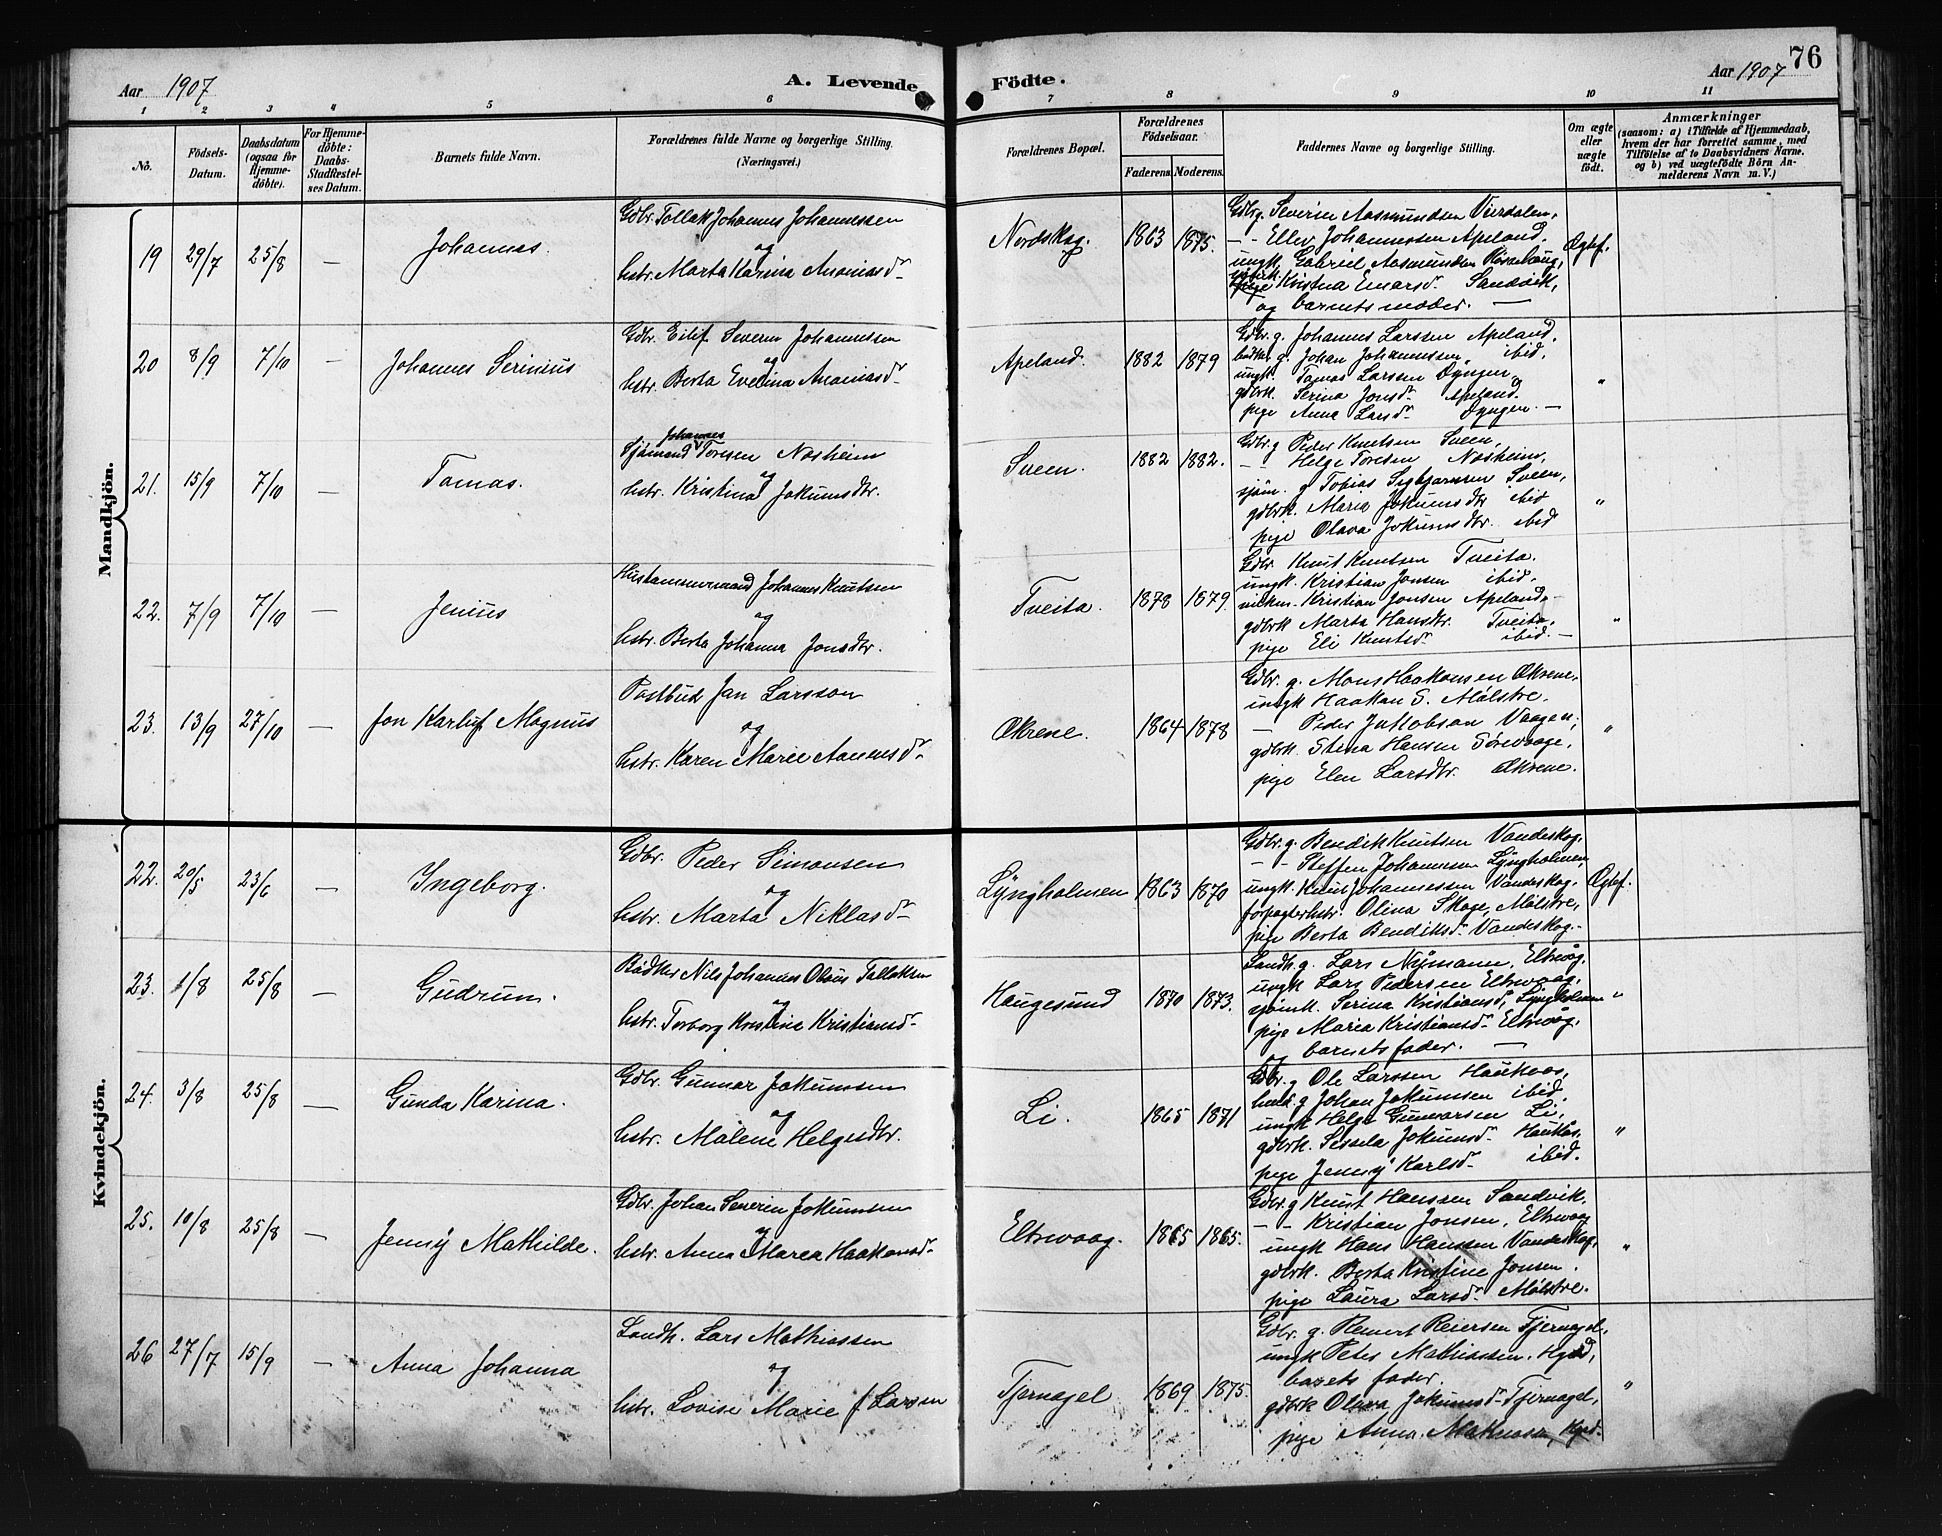 76
Aar 1907
A. Levende Födte.
Aar 1907
1 2 3 4 5 6 7 8 9 10 11
No.
Födsels-
Datum.
Daabsdatum
(ogsaa for
Hjemme-
döbte).
For Hjemme-
döbte:
Daabs-
Stadfæstel-
ses Datum.
Barnets fulde Navn.
Forældrenes fulde Navne og borgerlige Stilling.
(Næringsvei.)
Forældrenes Bopæl.
Forældrenes
Födselsaar.
Faderens. Moderens.
Faddernes Navne og borgerlige Stilling.
Om ægte
eller
uægte
födt.
Anmærkninger
(saasom: a) i Tilfælde af Hjemmedaab,
hvem der har forrettet samme, med
Tilföielse af to Daabsvidners Navne.
og b) ved uægtefödte Börn An-
melderens Navn m. V.)
Mandkjön.
19 29/7 25/8 — Johannes.
Gdbr. Tollak Johannes Johannessen
og
hstr. Marta Karina Ananiasdr.
Nordskog. 1863 1875.
Gdbr. g. Severin Aasmundsen Vierdalen,
- - Ellev Johannessen Apeland,
ungk. Gabriel Aasmundsen
Kristna Einarsdr. Sandvik,
og barnets moder. —
Ægtef.
20 8/9 7/10 — Johannes Serinius
Gdbr. Eilif Severin Johannessen
og
hstr. Berta Evelina Ananiasdr.
Apeland. 1882 1879
Gdbr. g. Johannes Larssen Apeland,
g. Johan Johannessen, ibid,
ungk. Tomas Larssen Dyngen,
gdbrk. Serina Jonsdr. Apeland.
pige Anna Larsdr. Dyngen. —
"
21. 15/9 7/10 — Tomas.
Johannes
Sjömand Toresen Nosheim
og
hstr. Kristina Jokumsdtr.
Sveen. 1882 1882.
Gdbr. g Peder Knutsen Sveen,
— Helge Toresen Nosheim,
sjöm. g Tobias Sigbjørnsen Sveen,
gdbrk. Maria Jokumsdtr ibid
pige Olava Jokumsdtr. ibid
"
22. 7/9 7/10 — Jenius
Hustømmermand Johannes Knutsen
og
hstr. Berta Johanna Jonsdtr.
Tveita. 1878 1879
Gdbr. Knut Knutsen Tveita.
ungk. Kristian Jonsen ibid.
Kristian Jonsen Apeland.
gdbrk Marta Hansdtr. Tveita,
pige Eli Knutsdr. ibid. —
"
23. 13/9 27/10 — Jon Karluf Magnus
Postbud Jan Larsson
og
hstr. Karen Marie Aamundsdr.
Økrene. 1864 1878
Gdbr. g. Mons Haakonsen Økrene,
ungk Haakon S. Mølstre.
— Peder Jakobson Vaagen,
gdbrk. Stina Hansen Sørevaage,
pige Elen Larsdtr. Økrene.
"
Kvindekjön.
22. 20/5 23/6 — Ingeborg.
Gdbr. Peder Simonsen
og
hstr. Marta Niklasdr.
Lyngholmen 1863 1870
Gdbr. g. Bendik Knutsen Vandeskog.
- - Steffen Johannesen Lyngholmen
ungk. Knut Johannessen Vandeskog.
forpagterhstr. Olina Skoge, Mølstre,
pige Berta Bendiksdr. Vandeskog.
Ægtef.
23. 1/8 25/8 — Gudrun.
Bødker Nils Johannes Olaus Tollaksen
og
hstr. Torborg Kristina Kristiansdr.
Haugesund 1870 1873.
Landh. g. Lars Nymann, Eltrvaag.
ungk Lars Pedersen Eltrvaag,
sjömk. Serina Kristiansdr, Lyngholmen
pige Maria Kristiansdr. Eltrvaag.
og barnets fader. —
"
24. 3/8 25/8 — Gunda Karina.
Gdbr. Gunnar Jokumsen
og
hstr. Målene Helgesdtr.
Li. 1865 1871
Gdbr. g Ole Larssen Haukaas,
g Johan Jokumsen ibid.
ungk Helge Gunnarsen Li,
gdbrk. Sissela Jokumsdr. Haukås,
pige Jenny Karlsdr. ibid.
"
25. 10/8 25/8 — Jenny Mathilde.
Gdbr. Johan Severin Jokumsen
og
hstr. Anna Maria Haakonsdr.
Eltrvaag. 1865 1865.
Gdbr. g Knut Hanssen Sandvik.
- - Kristian Jonsen, Eltrvaag
ungk Hans Hanssen Vandeskog,
gdbrk. Berta Kristine Jonsen.
pige Laura Larsdr. Mølstre.
"
26 27/7 15/9 — Anna Johanna
Landh. Lars Mathiassen
og
hstr. Lovise Marie f Larsen
Tjernagel 1869 1875.
Gdbr. g. Reinert Reiersen Tjernagel,
ungk Peter Mathiassen, Hgsd,
barets fader.
gdbrk Olava Jokumsdr. Tjernagel,
pige Anna Mathiassen, Hgsd.
"